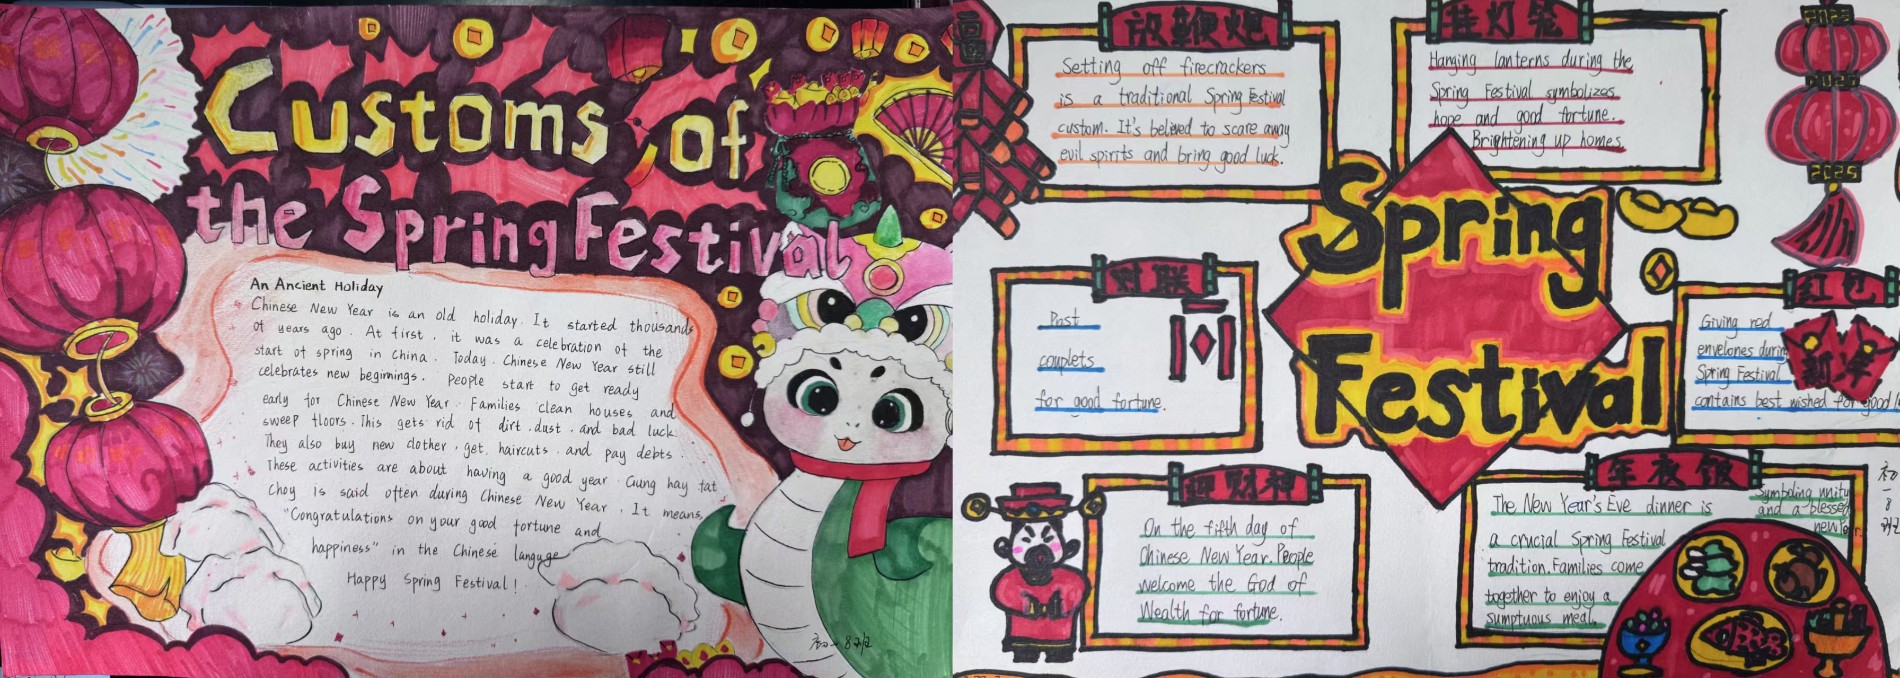 Customs of
the Spring Festival
An Ancient Holiday
Chinese New Year is an old holiday. It started thousands
of years ago. At first, it was a celebration of the
start of spring in China. Today, Chinese New Year still
celebrates new beginnings. People start to get ready
early for Chinese New Year. Families clean houses and
sweep floors. This gets rid of dirt, dust, and bad luck.
They also buy new clother, get, haircuts, and pay debts.
These activities are about having a good year. Gung hay fat
choy is said often during Chinese New Year. It means,
"Congratulations on your good fortune and
happiness" in the Chinese languge
Happy Spring Festival!
放鞭炮
Setting off firecrackers
is a traditional Spring Festival
custom. It's believed to scare away
evil spirits and bring good luck.
挂灯笼
Hanging lanterns during the
Spring Festival symbolizes
hope and good fortune.
Brightening up homes.
2025
2025
2025
Spring
Festival
对联
Past
couplets
for good fortune.
红包
Giving red
envelopes during
Spring Festival
contains best wished for good
新年
迎财神
On the fifth day of
Chinese New Year. People
welcome the God of
Wealth for fortune.
年夜饭
The New Year's Eve dinner is
a crucial Spring Festival
tradition. Families come
together to enjoy a
sumptuous meal.
Symboling unity
and a blessed
new